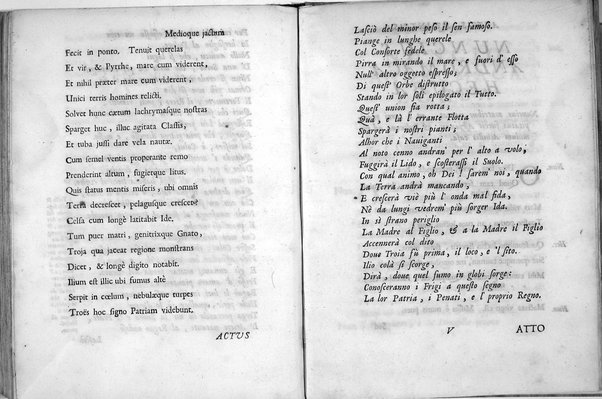 Medioque jactum
Fecit in ponto. Tenuit querelas
Et vir, & Pyrrhe, mare cum viderent,
Et nihil præter mare cum viderent,
Unici terris homines relicti.
Solvet hunc cœtum lachrymasque nostras
Sparget huc, illoc agitata Classis,
Et tuba jussi dare vela nautæ.
Cum simul ventis properante remo
Prenderint altum, fugietque litus.
Quis status mentis miseris, ubi omnis
Terra decrescet, pelagusque crescet?
Celsa cum longè latitabit Ide.
Tum puer matri, genitrixque Gnato,
Troja qua jaceat regione monstrans
Dicet, & longè digito notabit.
Ilium est illic ubi fumus altè
Serpit in cœlum, nebulæque turpes
Troës hoc signo Patriam videbunt.
ACTUS
Lasciò del minor peso il sen famoso.
Piange in lunghe querele
Col Consorte fedele
Pirra in mirando il mare, e fuori d' esso
Null' altro oggetto espresso;
Di quest' Orbe distrutto
Stando in lor soli epilogato il Tutto.
Quest' union fia rotta;
Quà, e là l' errante Flotta
Spargerà i nostri pianti;
Alhor che i Naviganti
Al noto cenno andran' per l' alto a volo,
Fuggirà il Lido, e scosterassi il Suolo.
Con qual animo, oh Dei! sarem' noi, quando
La Terra andrà mancando,
E crescerà viè più l' onda mal fida,
Nè da lungi vedrem' più sorger Ida.
In sì strano periglio
La Madre al Figlio, & a la Madre il Figlio
Accennerà col dito
Doue Troia fù prima, il loco, e 'l sito.
Ilio colà si scorge,
Dirà, doue quel fumo in globi sorge:
Conosceranno i Frigi a questo segno
La lor Patria, i Penati, e 'l proprio Regno.
V ATTO